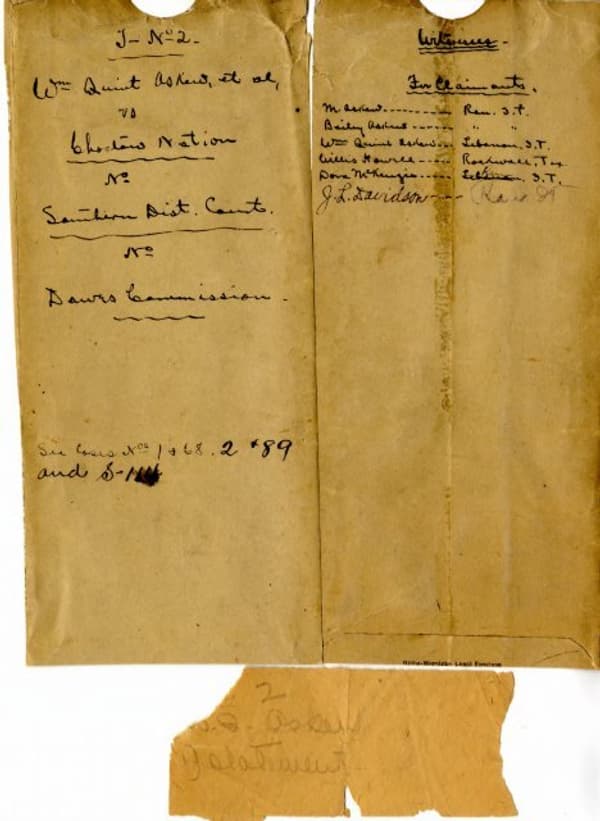 J - Nº 2 -
Wm Quint Askew, et al,
vs
Choctaw Nation
Nº
Southern Dist. Court.
Nº
Dawes Commission -
See Cases Nos 1 & 68. 2 & 89
and S-114
Witnesses -
For Claimants.
M Askew - - - - Ran. I.T.
Bailey Askew - - - - " "
Wm Quint Askew - - Lebanon, I.T.
Willis Howell - - - Rockwall, Tex
Dora McKenzie - - - Lebanon, I.T.
J. L. Davidson - -
Legal Envelope
2